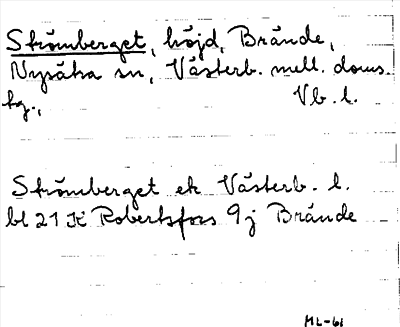 Strömberget, höjd, Brände,
Nysätra sn, Västerb. mell. doms.
hg., Vb. l.
Strömberget ek Västerb. l.
bl 21 K Robertsfors 9j Brände
ML-61